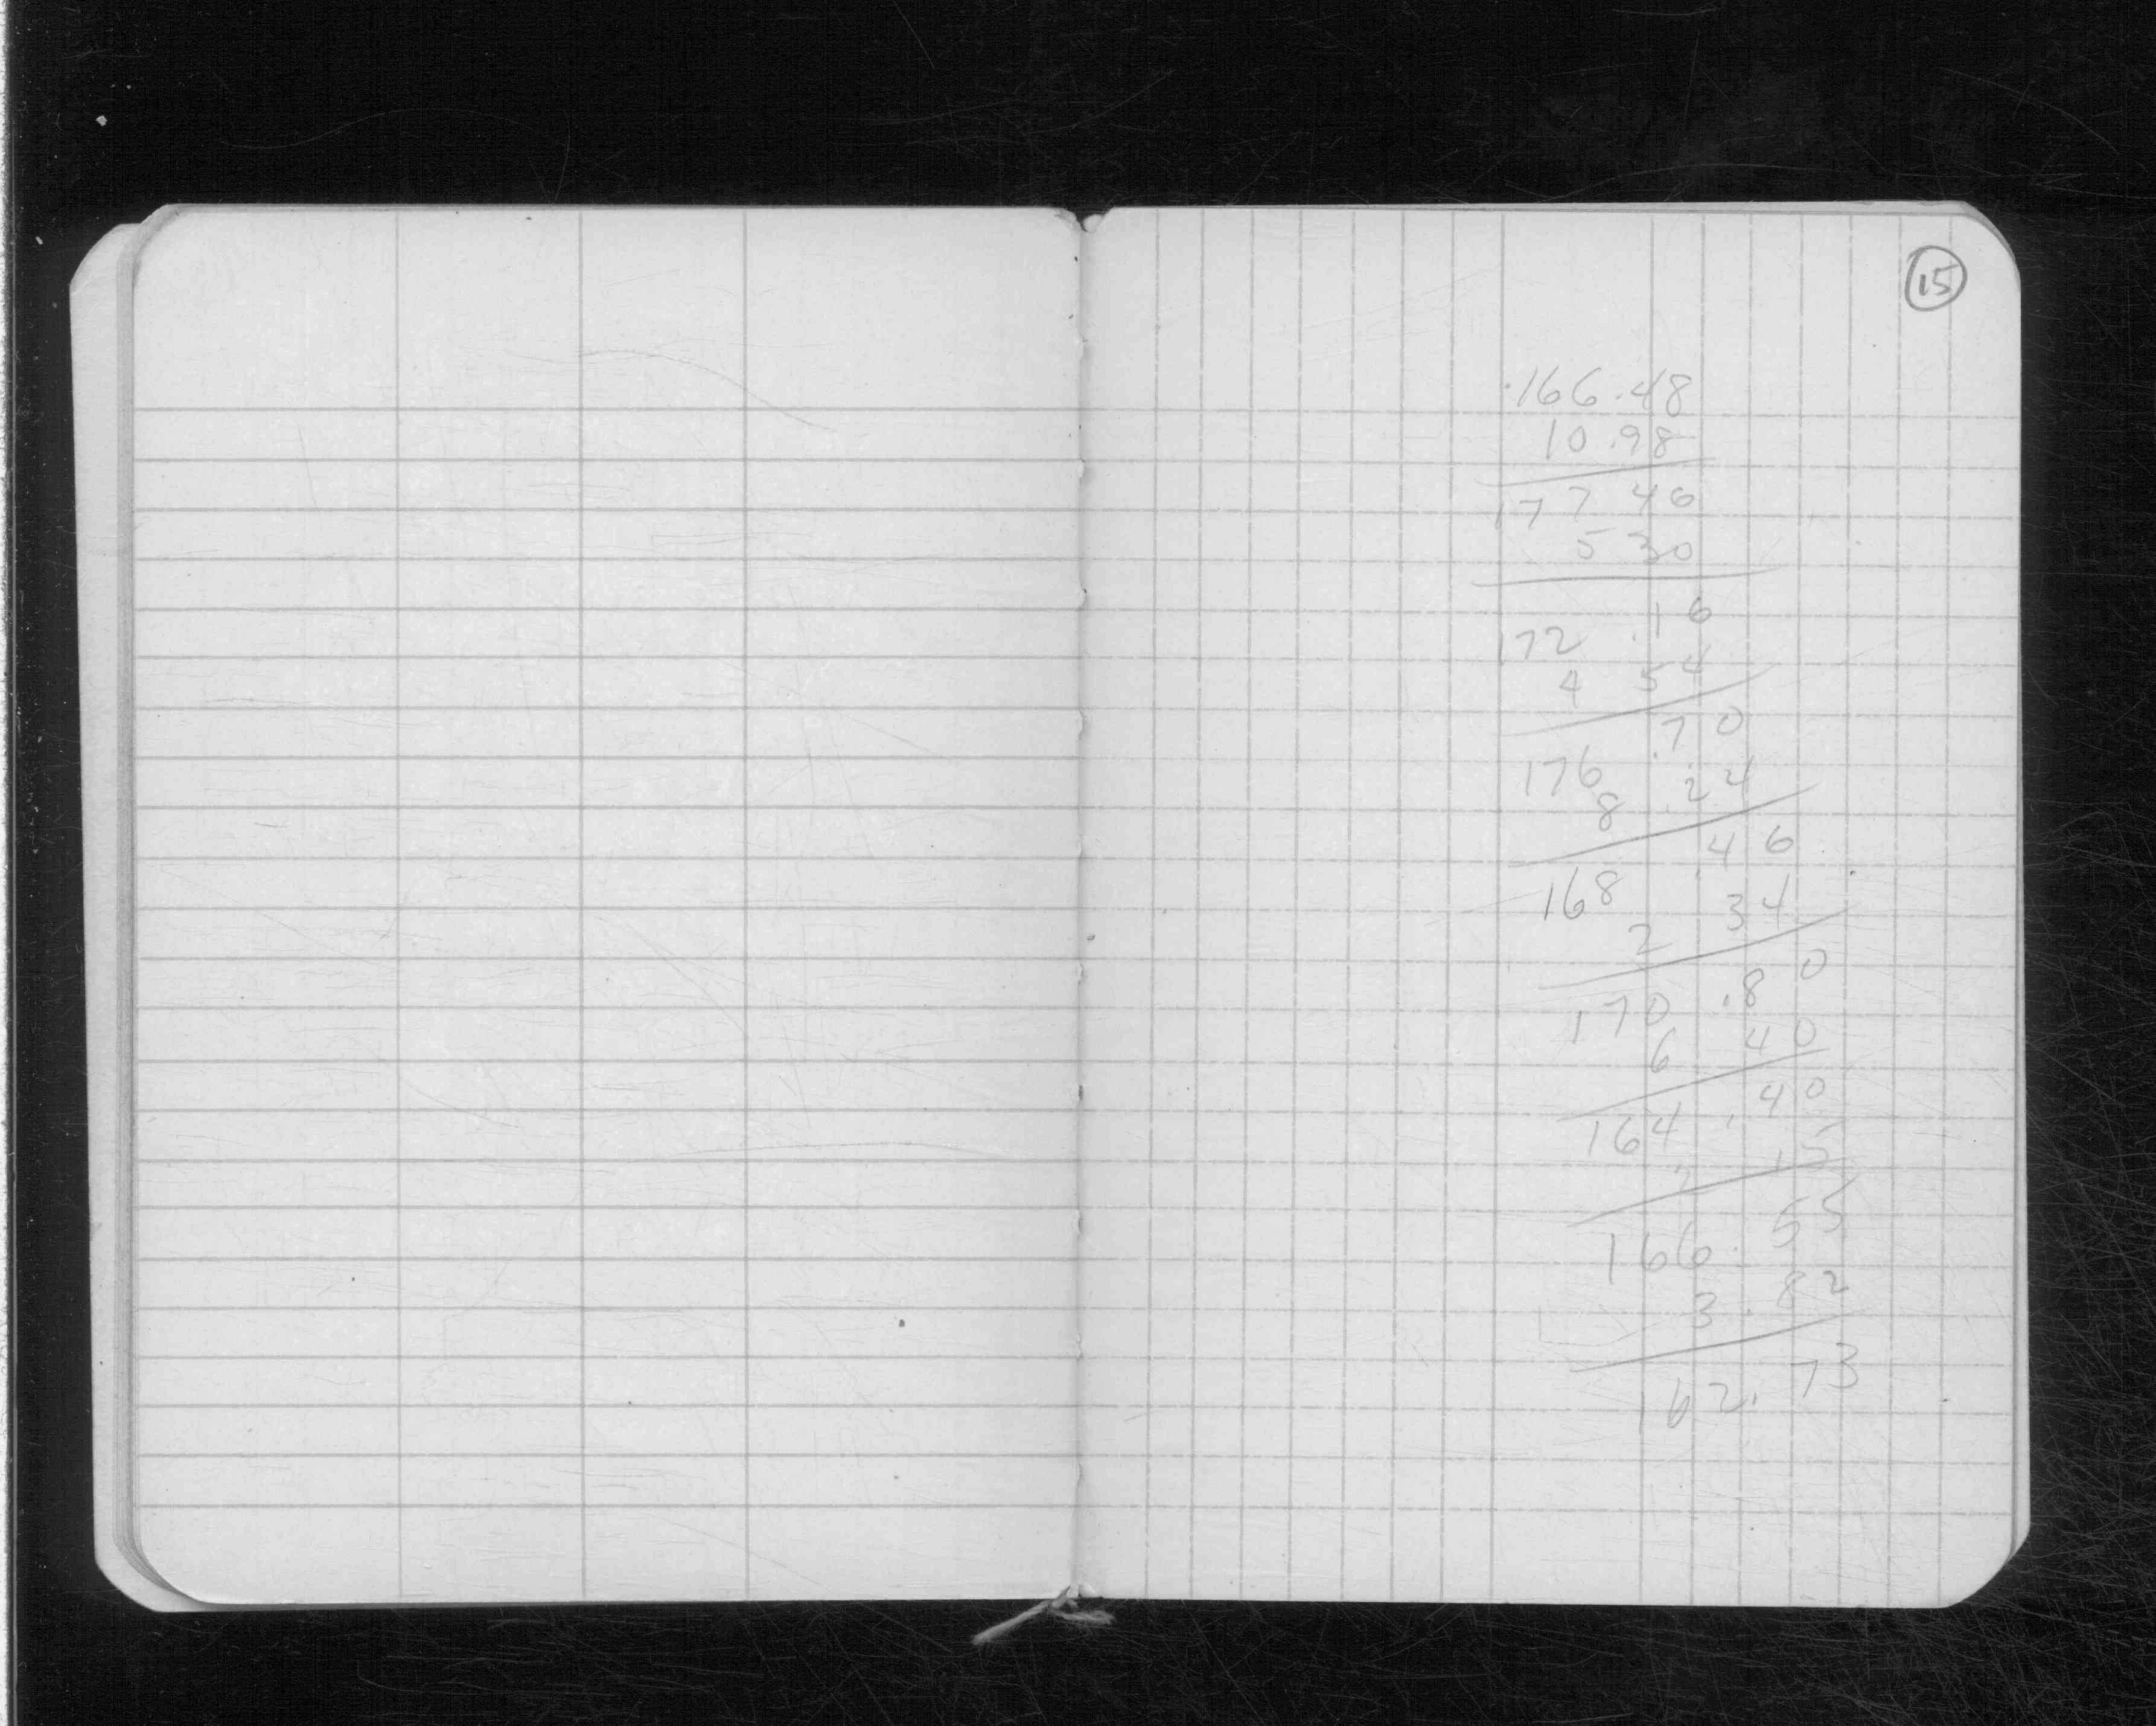 15
.166.48
10.98
177 46
5 30
172 .16
4 54
176 .70
8 .24
168 .46
2 34
170 .80
6 40
164 .40
2 .15
166.55
3.82
162.73